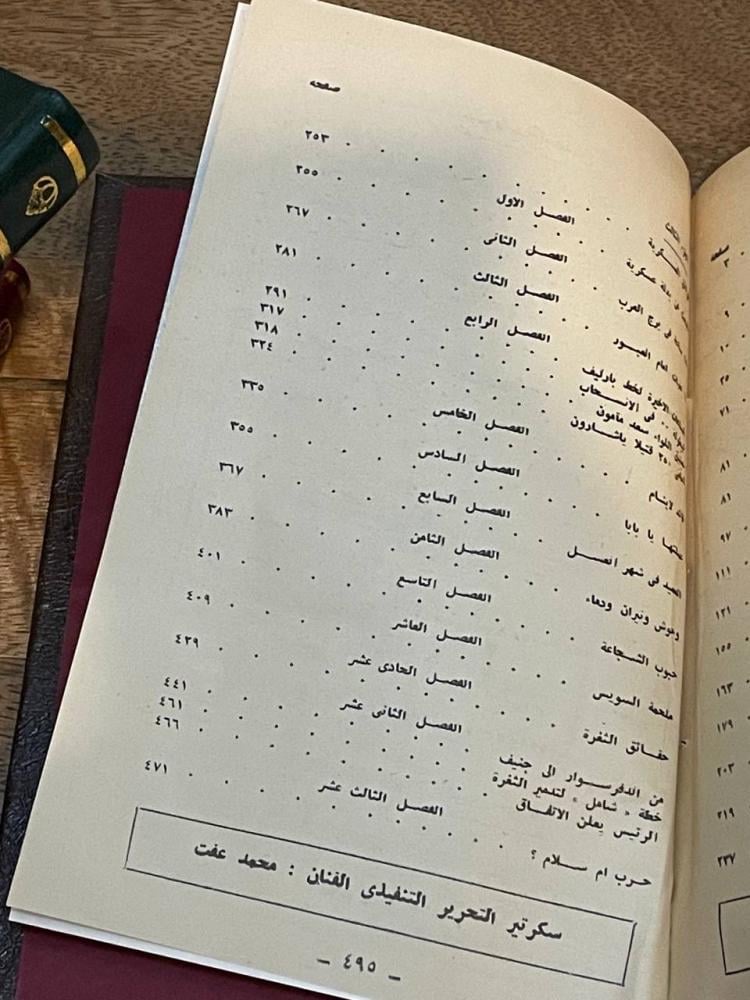 صفحة
٣
٩
١٠
٢٥
٧١
٨١
٨١
٩٧
١١١
١�١
١٥٥
١٦٣
١٧٩
٢٠٣
٢١٩
٢٣٧
صفحه
الثالث
العسكرية . . . . . . . ٢٥٣
الفصل الاول
فى بدلة عسكرية . . . . . . . ٢٥٥
الفصل الثانى
فى برج العرب . . . . . . . ٢٦٧
الفصل الثالث
امام العبور . . . . . . . ٢٨١
الفصل الرابع
الاخيرة لخط بارليف . . . . . . . ٢٩١
. . فى الانسحاب . . . . . . . ٣١٧
اللواء سعد مامون . . . . . . . ٣١٨
٢٥٠ قتيلا ياشارون . . . . . . . ٣٢٤
الفصل الخامس
لاينام . . . . . . . ٣٣٥
الفصل السادس
يا بابا . . . . . . . ٣٥٥
الفصل السابع
فى شهر العسل . . . . . . . ٣٦٧
الفصل الثامن
وحوش ونيران ودماء . . . . . . . ٣٨٣
الفصل التاسع
حبوب الشجاعة . . . . . . . ٤٠١
الفصل العاشر
ملحمة السويس . . . . . . . ٤٠٩
الفصل الحادى عشر
حقائق الثغرة . . . . . . . ٤٢٩
الفصل الثانى عشر
من الدفرسوار الى جنيف . . . . . . . ٤٤١
خطة « شامل » لتدمير الثغرة . . . . . . . ٤٦١
الرئيس يعلن الاتفاق . . . . . . . ٤٦٦
الفصل الثالث عشر
حرب ام سلام ؟ . . . . . . . ٤٧١
سكرتير التحرير التنفيذى الفنان : محمد عفت
– ٤٩٥ –